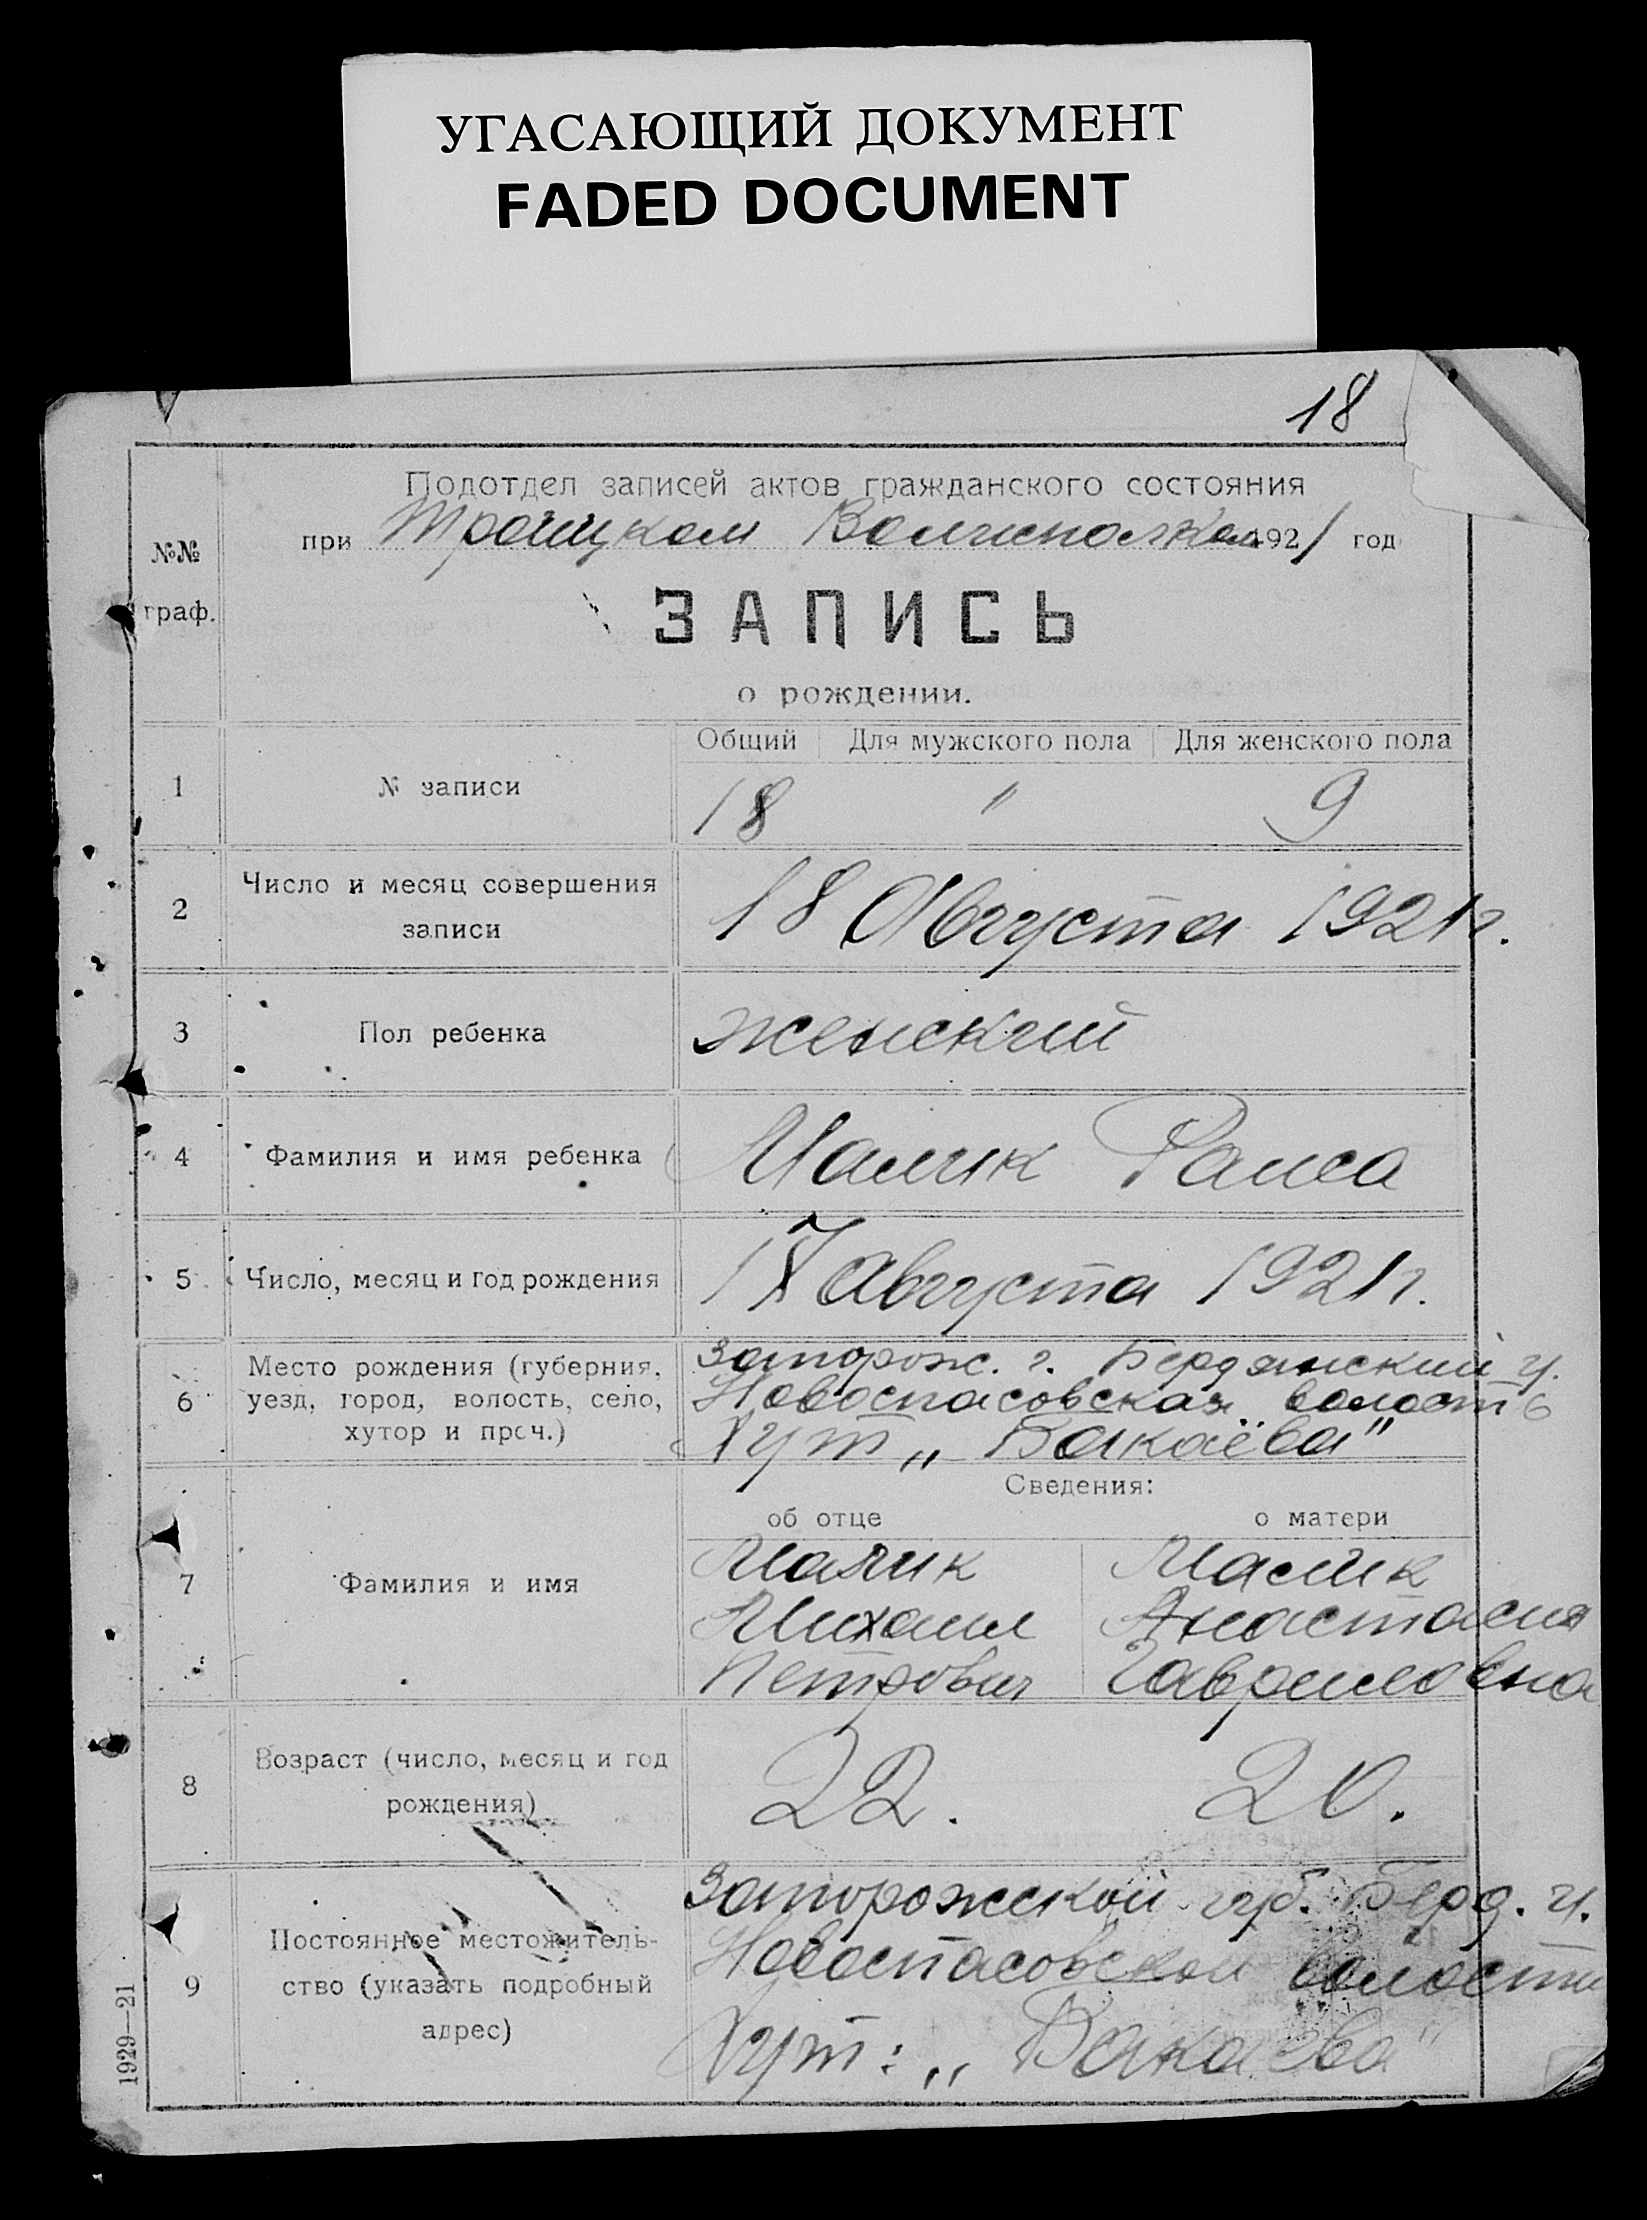 УГАСАЮЩИЙ ДОКУМЕНТ
FADED DOCUMENT
18
Подотдел записей актов гражданского состояния
при Троицком Волисполкоме 1921 год
№№
граф.
ЗАПИСЬ
о рождении.
Общий Для мужского пола Для женского пола
1 № записи 18 " 9
2 Число и месяц совершения
записи
18 Августа 1921 г.
3 Пол ребенка женский
4 Фамилия и имя ребенка Малик Раиса
5 Число, месяц и год рождения 17 Августа 1921 г.
6 Место рождения (губерния,
уезд, город, волость, село,
хутор и проч.)
Запорож. г. Бердянский у.
Новоспасовская волость
Хут „Бакаёва"
Сведения:
об отце о матери
7 Фамилия и имя
Малик Малик
Михаил Анастасия
Петрович Гавриловна
8 Возраст (число, месяц и год
рождения)
22. 20.
9 Постоянное местожитель-
ство (указать подробный
адрес)
Запорожской губ. Берд. у.
Новоспасовской волости
Хут: „Бакаева"
1929—21